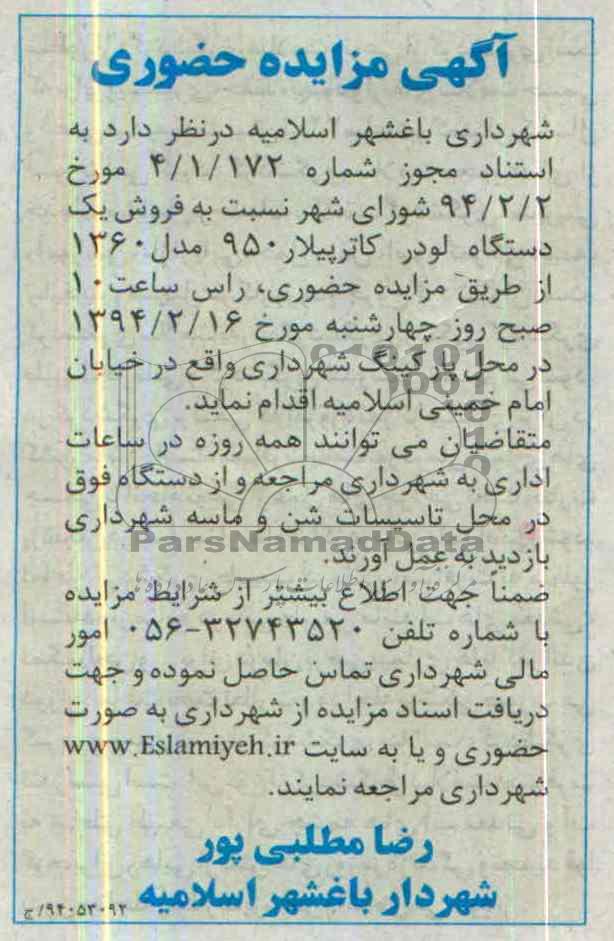 آگهی مزایده حضوری
شهرداری باغشهر اسلامیه درنظر دارد به
استناد مجوز شماره ۴/۱/۱۷۲ مورخ
۹۴/۲/۲ شورای شهر نسبت به فروش یک
دستگاه لودر کاترپیلار ۹۵۰ مدل ۱۳۶۰
از طریق مزایده حضوری، راس ساعت ۱۰
صبح روز چهارشنبه مورخ ۱۳۹۴/۲/۱۶
در محل پارکینگ شهرداری واقع در خیابان
امام خمینی اسلامیه اقدام نماید.
متقاضیان می توانند همه روزه در ساعات
اداری به شهرداری مراجعه و از دستگاه فوق
در محل تاسیسات شن و ماسه شهرداری
ParsNamadData
بازدید به عمل آورند.
ضمناً جهت اطلاع بیشتر از شرایط مزایده
با شماره تلفن ۳۲۷۴۳۵۲۰-۰۵۶ امور
مالی شهرداری تماس حاصل نموده و جهت
دریافت اسناد مزایده از شهرداری به صورت
حضوری و یا به سایت www.Eslamiyeh.ir
شهرداری مراجعه نمایند.
رضا مطلبی پور
شهردار باغشهر اسلامیه
۹۴۰۵۳۰۹۲/ج